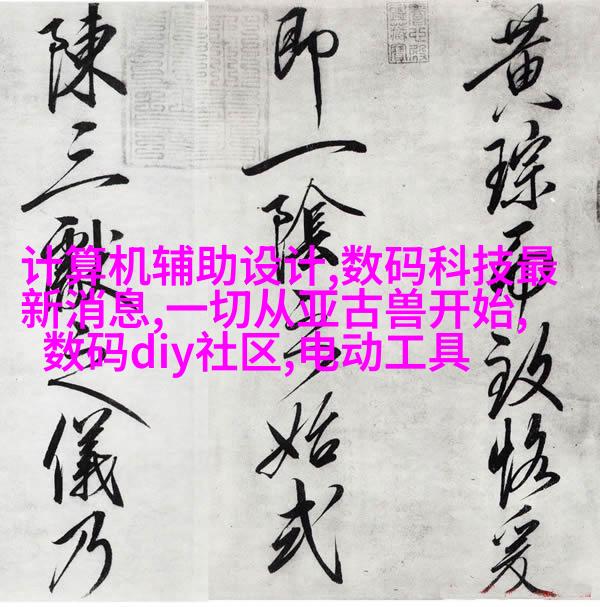 黄琮致恪爰
即一陰始式
陳三獻之儀乃
计算机辅助设计,数码科技最
新消息,一切从亚古兽开始,
数码diy社区,电动工具